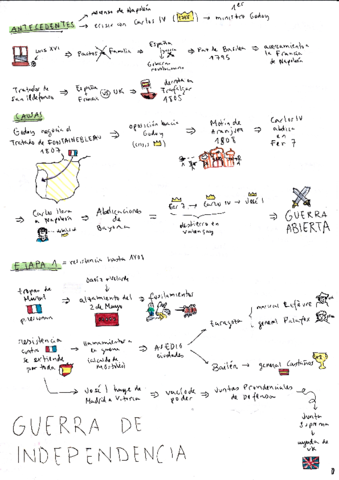 → ascenso de Napoleón
ANTECEDENTES → crisis con Carlos IV → 1er ministro Godoy
Luis XVI → Pactos Familia → España → Paz de Basilea 1795 → acercamiento a la Francia de Napoleón
Gobierno revolucionario
Tratado de San Ildefonso → España Francia VS UK → derrota en Trafalgar 1805
CAUSAS
Godoy negocia el Tratado de FONTAINEBLEAU 1807 → oposición hacia Godoy (crisis) → Motín de Aranjuez 1808 → Carlos IV abdica en Fer 7
→ Carlos llama a Napoleón → Abdicaciones de Bayona = Fer 7 → Carlos IV → José I ⇒ GUERRA ABIERTA
destierro en Valençay
ETAPA 1 = resistencia hasta
Daoíz + Velarde
tropas de Murat → alzamiento del 2 de Mayo → fusilamientos
resistencia contra se extiende por toda → llamamiento a la guerra (alcalde de Móstoles) → ASEDIO ciudades
Zaragoza → mariscal Lefèvre
→ general Palafox
Bailén → general Castaños
→ José I huye de Madrid a Vitoria → vacío de poder → Juntas Provinciales de Defensa
Junta Suprema
ayuda de UK
GUERRA DE
INDEPENDENCIA